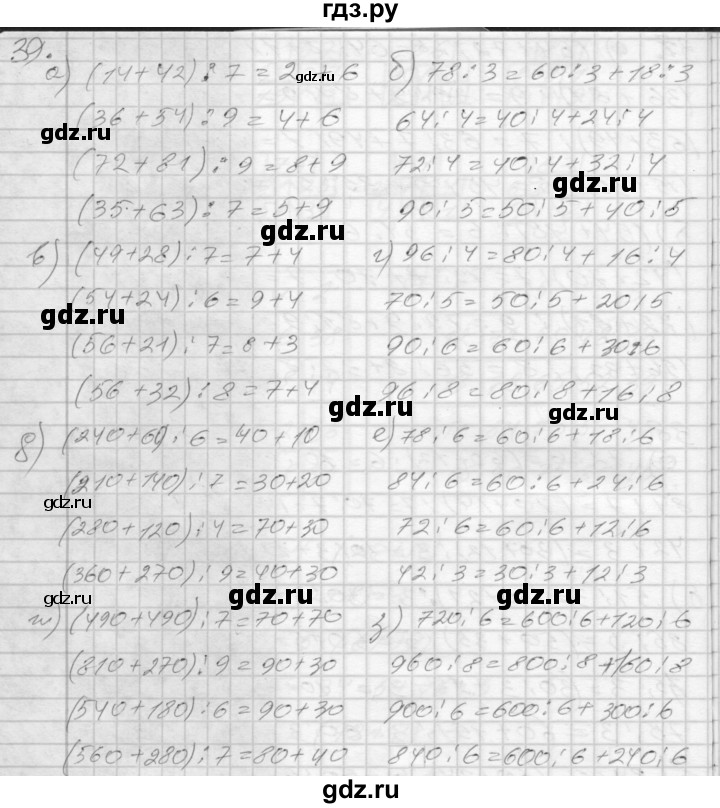 гдз.ру
39.
а) (14+42):7=2+6 б) 78:3=60:3+18:3
gdz.ru
(36+54):9=4+6 64:4=40:4+24:4
gdz.ru
(72+81):9=8+9 72:4=40:4+32:4
gdz.ru
(35+63):7=5+9 90:5=50:5+40:5
gdz.ru
в) (49+28):7=7+4 г) 96:4=80:4+16:4
(54+24):6=9+4 70:5=50:5+20:5
gdz.ru
(56+21):7=8+3 90:6=60:6+30:6
(56+32):8=7+4 96:8=80:8+16:8
gdz.ru gdz.ru
д) (240+60):6=40+10 е) 78:6=60:6+18:6
(210+140):7=30+20 84:6=60:6+24:6
gdz.ru
(280+120):4=70+30 72:6=60:6+12:6
(360+270):9=40+30 42:3=30:3+12:3
gdz.ru gdz.ru gdz.ru
ж) (490+490):7=70+70 з) 720:6=600:6+120:6
(810+270):9=90+30 960:8=800:8+160:8
(540+180):6=90+30 900:6=600:6+300:6
gdz.ru gdz.ru
(560+280):7=80+40 840:6=600:6+240:6
gdz.ru